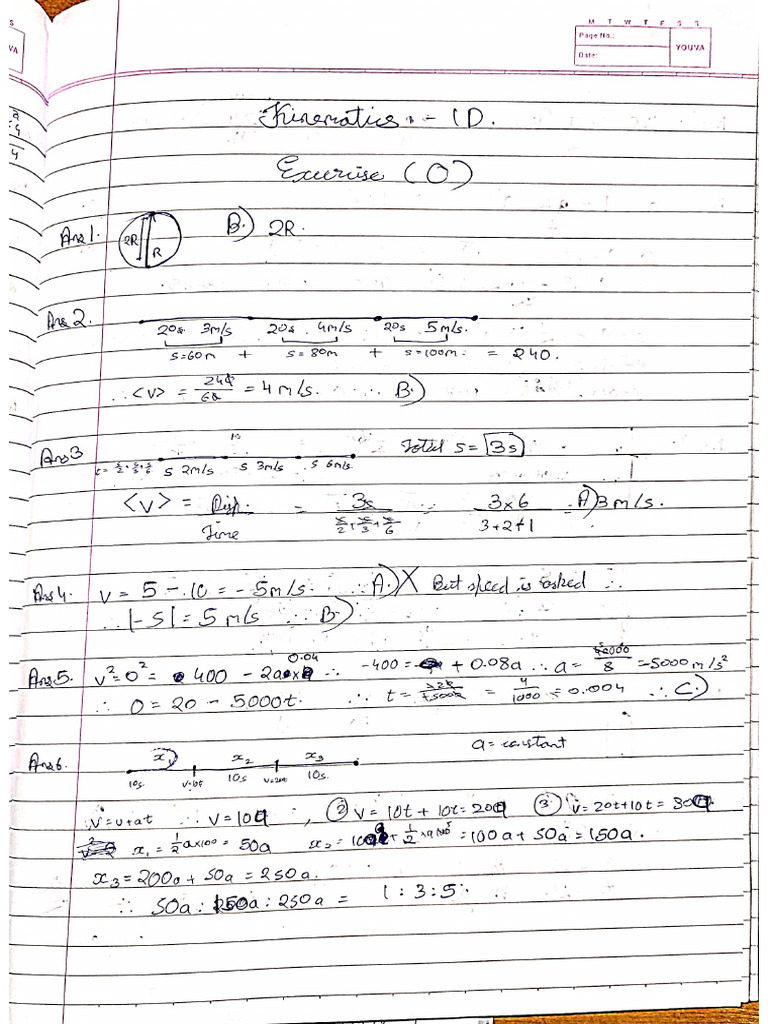 S
VA
M T W T F S S
Page No.:
Date:
YOUVA
Kinematics :- 1D.
Exercise (O)
Ans 1. 2R R B.) 2R.
Ans 2.
20s 3m/s 20s 4m/s 20s 5m/s.
s=60m + s=80m + s=100m. = 240.
∴ <v> = 240/60 = 4m/s. ∴ B.)
Ans 3 Total s = 3s
t = s/2 + s/3 + s/6 s 2m/s s 3m/s s 6m/s
<v> = Disp./Time = 3s/(s/2 + s/3 + s/6) = 3×6/(3+2+1) = A) 3m/s.
Ans 4. v = 5 - 10 = -5m/s. ∴ A.) X But speed is asked ∴
|-5| = 5 m/s ∴ B.)
Ans 5. v²=0²= 400 - 2a×0.04 ∴ -400 = + 0.08a ∴ a = 40000/8 = 5000 m/s²
∴ 0 = 20 - 5000t. ∴ t = 20/5000 = 4/1000 = 0.004 ∴ C.)
Ans 6. x₁ x₂ x₃ a = constant
10s. v=10t 10s v=20t 10s.
v=u+at ∴ v=10a , ② v = 10t + 10t = 20a ③ v = 20t+10t = 30a
x₁ = ½a×100 = 50a x₂ = 100a + ½×a×100 = 100a + 50a = 150a.
x₃ = 200a + 50a = 250a.
∴ 50a : 150a : 250a = 1 : 3 : 5.